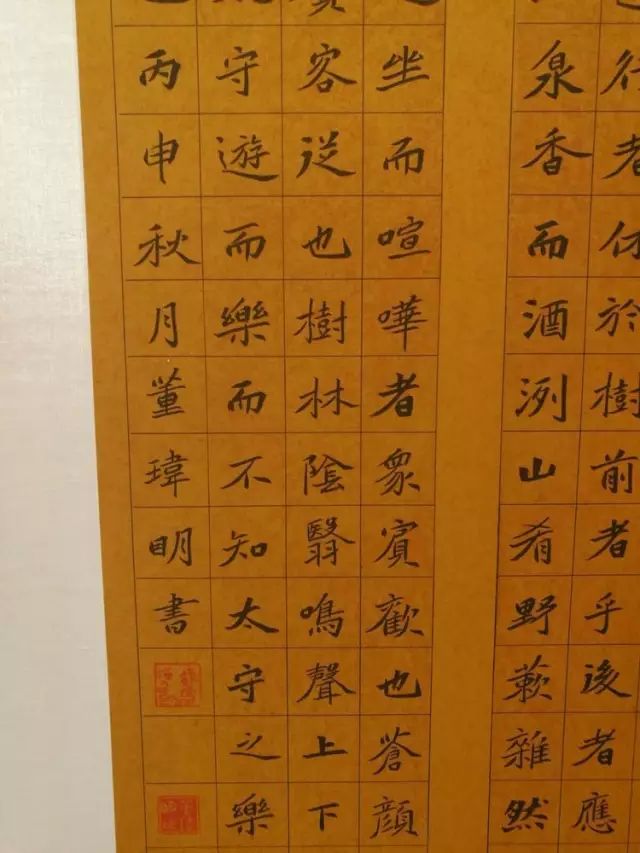 者休於樹前者乎後者應
泉香而酒洌山肴野蔌雜然
坐而喧嘩者眾賓歡也蒼顏
客從也樹林陰翳鳴聲上下
守遊而樂而不知太守之樂
丙申秋月董瑋明書